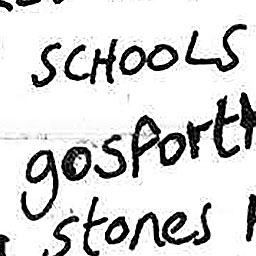 SCHOOLS
gosforth
stones